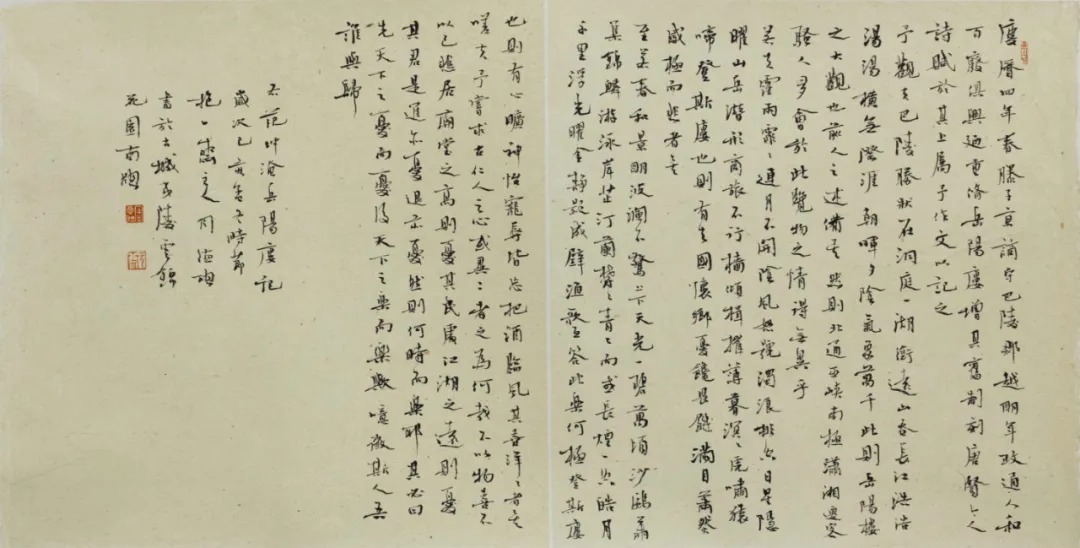 慶曆四年春滕子京謫守巴陵郡越明年政通人和
百廢俱興廼重脩岳陽樓增其舊制刻唐賢今人
詩賦於其上屬予作文以記之
予觀夫巴陵勝狀在洞庭一湖銜遠山吞長江浩浩
湯湯橫無際涯朝暉夕陰氣象萬千此則岳陽樓
之大觀也前人之述備矣然則北通巫峽南極瀟湘遷客
騷人多會於此覽物之情得無異乎
若夫霪雨霏〻連月不開陰風怒號濁浪排空日星隱
曜山岳潛形商旅不行檣傾楫摧薄暮冥〻虎嘯猿
啼登斯樓也則有去國懷鄉憂讒畏譏滿目蕭然
感極而悲者矣
至若春和景明波瀾不驚上下天光一碧萬頃沙鷗翔
集錦鱗游泳岸芷汀蘭鬱〻青〻而或長煙一空皓月
千里浮光曜金靜影沉璧漁歌互答此樂何極登斯樓
也則有心曠神怡寵辱皆忘把酒臨風其喜洋〻者矣
嗟夫予嘗求古仁人之心或異二者之為何哉不以物喜不
以己悲居廟堂之高則憂其民處江湖之遠則憂
其君是進亦憂退亦憂然則何時而樂耶其必曰
先天下之憂而憂後天下之樂而樂歟噫微斯人吾
誰與歸
右范仲淹岳陽樓記
歲次己亥冬時節
抱一齋主人周德聰
書於古城夷陵雲錦
花園南窗